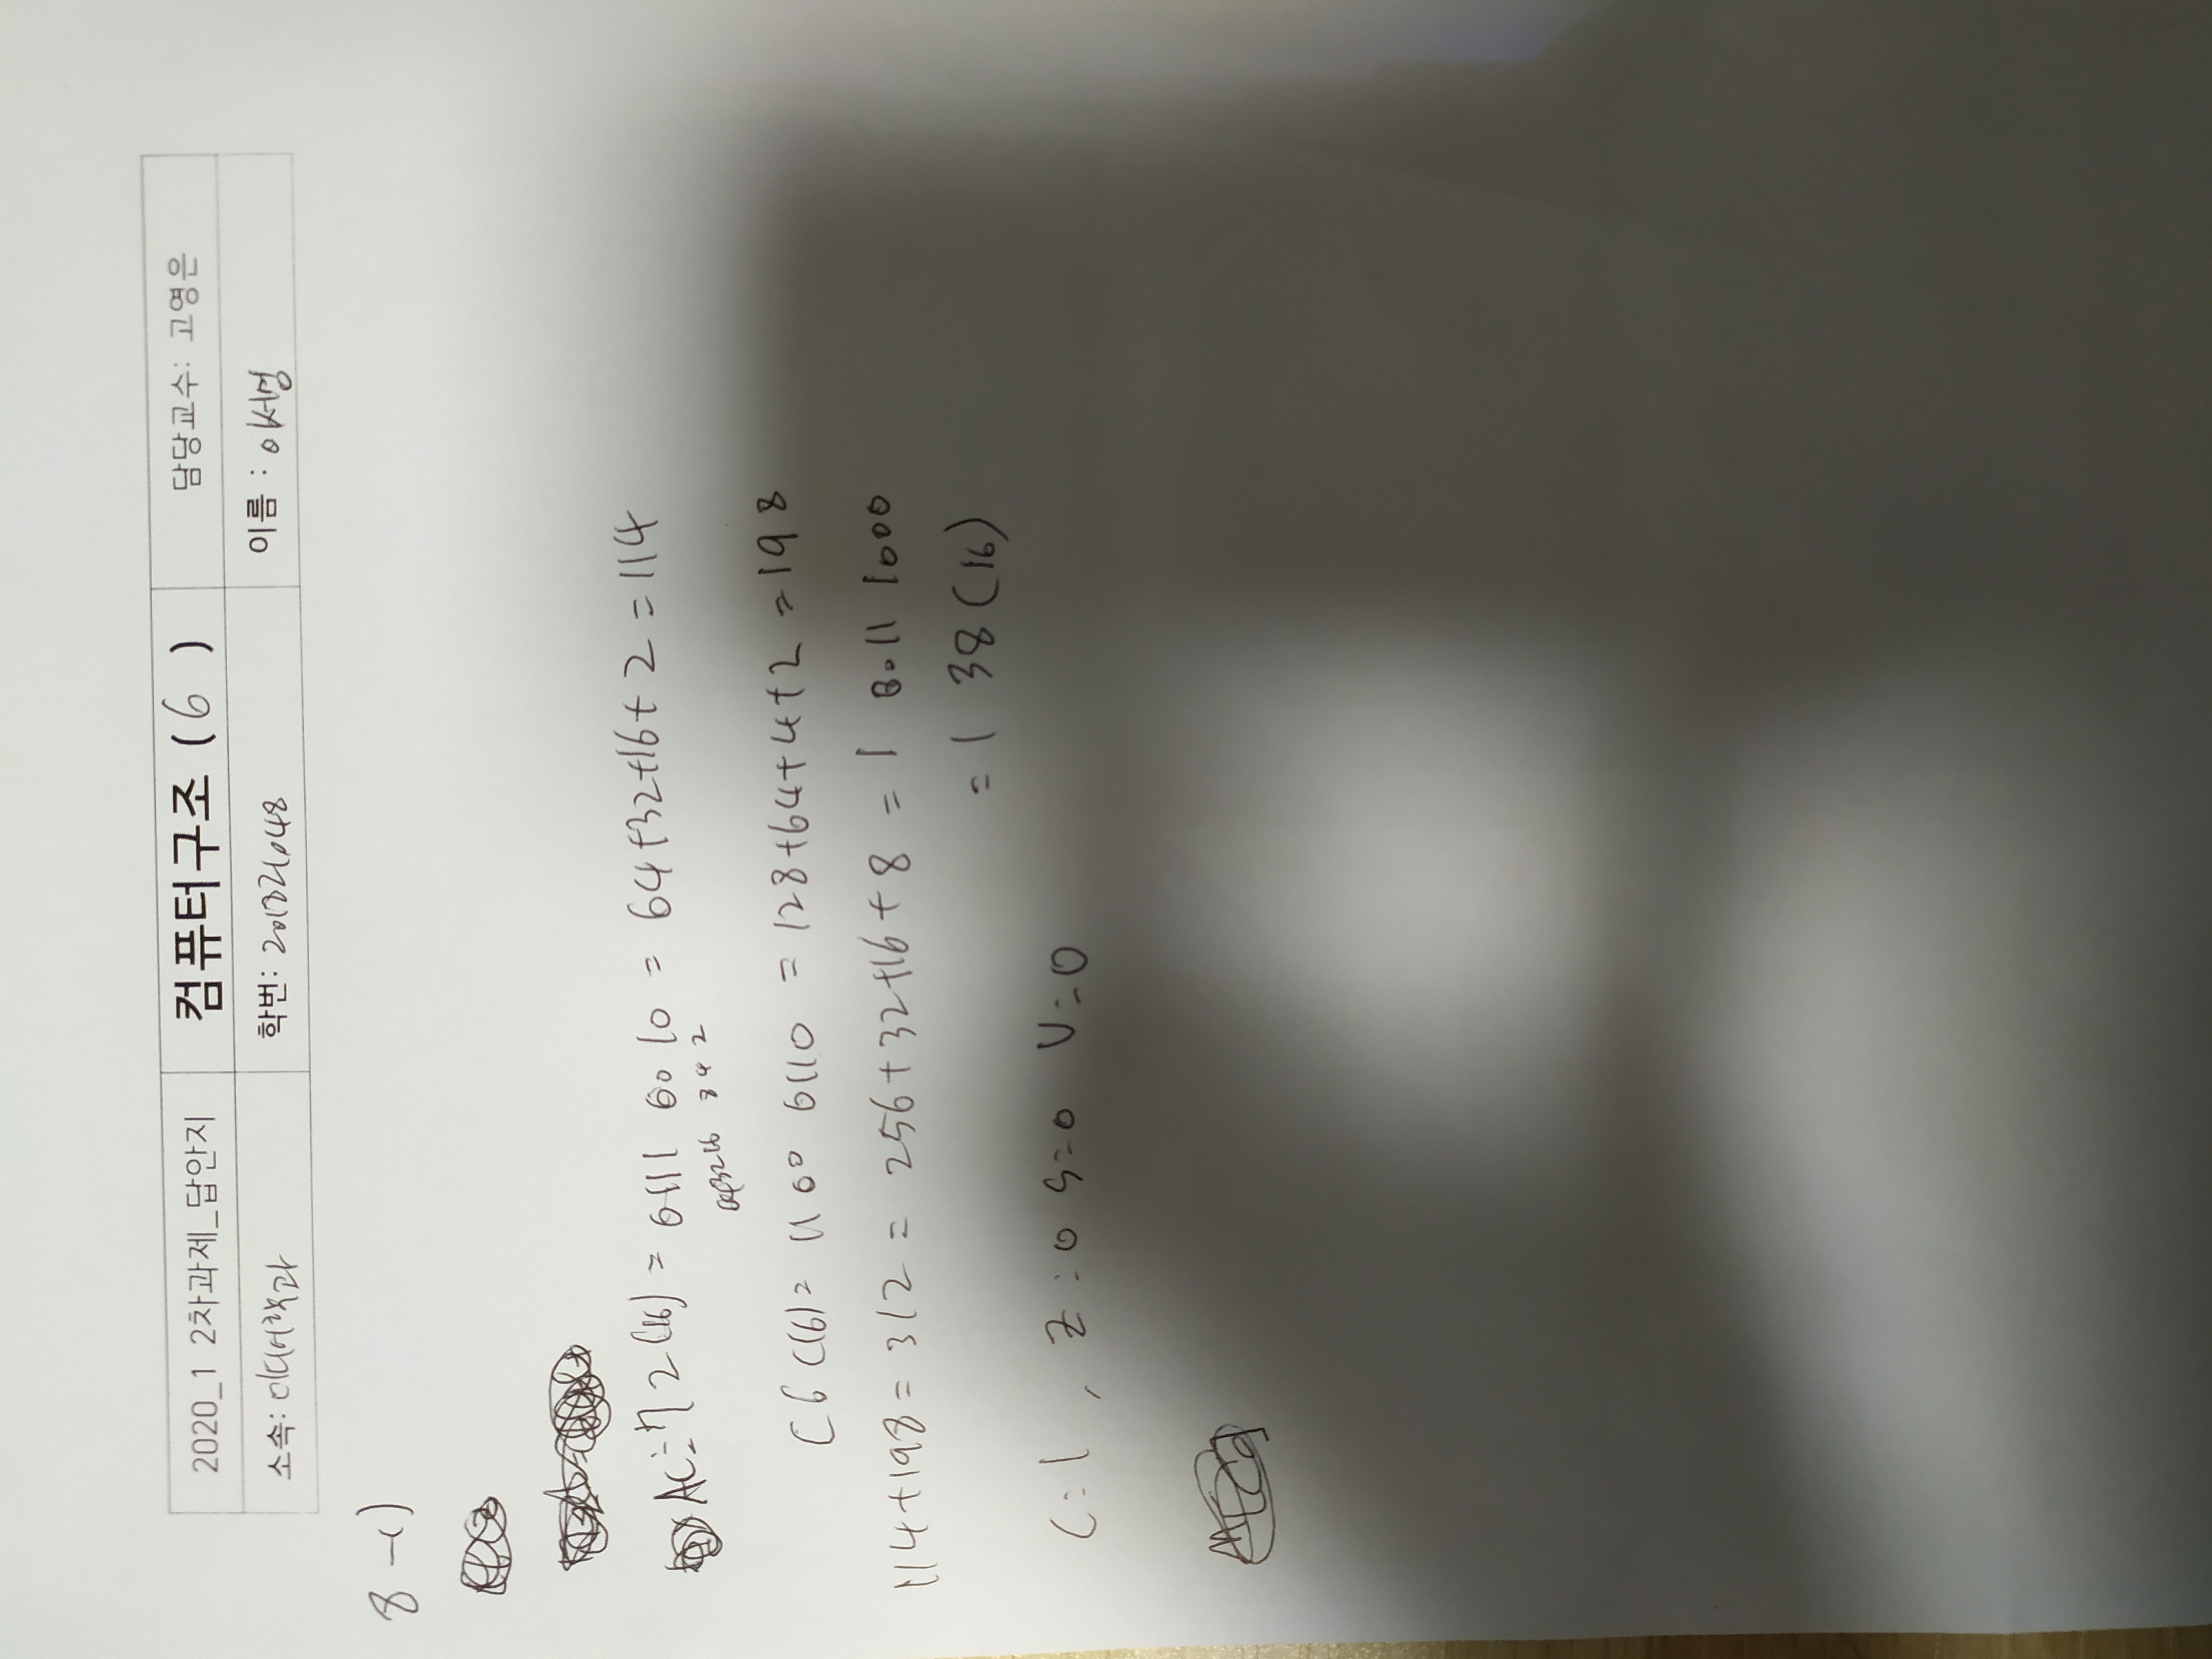 2020_1 2차과제_답안지 컴퓨터구조 ( 6 ) 담당교수: 고영은
소속: 미디어학과 학번: 201821048 이름 :
8-1)
AC = 72(16) = 0111 0010 = 64+32+16+2 = 114
64 32 16 8 4 2
C6(16) = 1100 0110 = 128+64+4+2 = 198
114+198 = 312 = 256+32+16+8 = 1 0011 1000
= 1 38(16)
C=1, Z=0 S=0 V=0